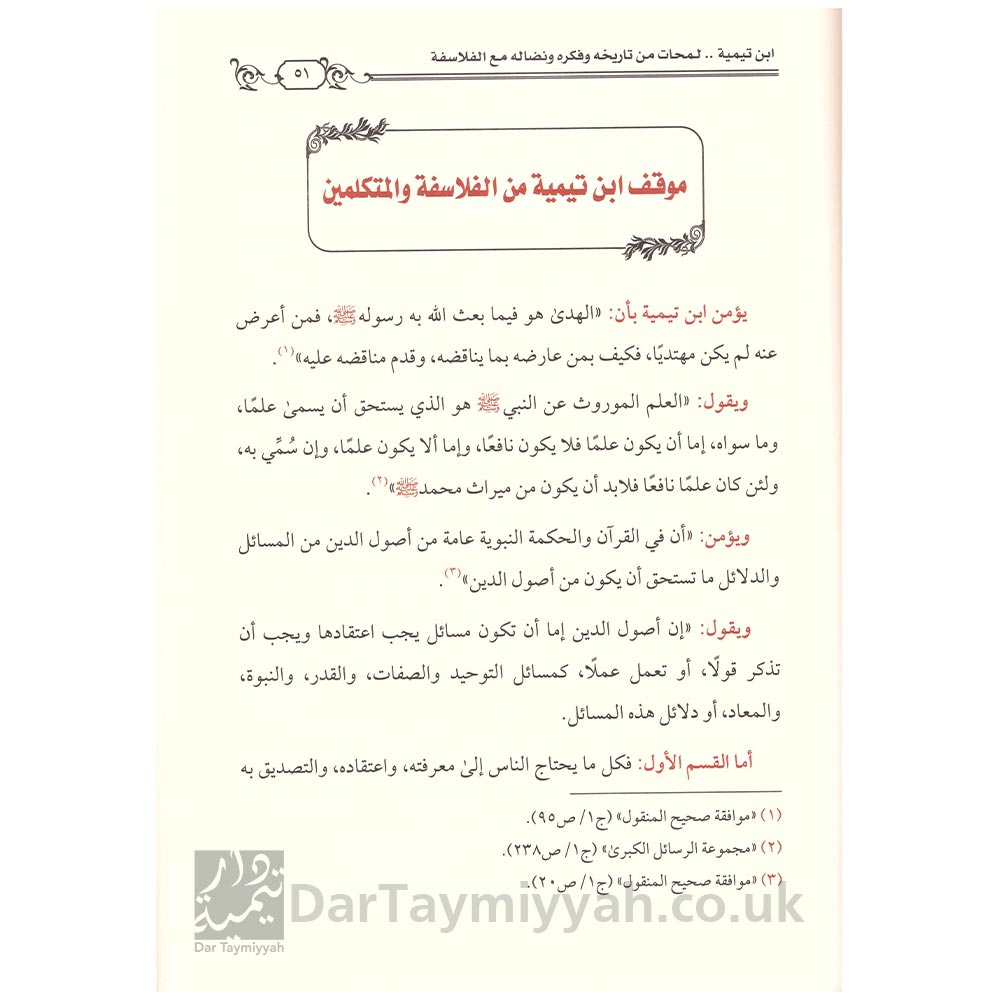 ابن تيمية .. لمحات من تاريخه وفكره ونضاله مع الفلاسفة
٥١
موقف ابن تيمية من الفلاسفة والمتكلمين
يؤمن ابن تيمية بأن: «الهدىٰ هو فيما بعث الله به رسوله ﷺ، فمن أعرض
عنه لم يكن مهتديًا، فكيف بمن عارضه بما يناقضه، وقدم مناقضه عليه»(١).
ويقول: «العلم الموروث عن النبي ﷺ هو الذي يستحق أن يسمىٰ علمًا،
وما سواه، إما أن يكون علمًا فلا يكون نافعًا، وإما ألا يكون علمًا، وإن سُمِّي به،
ولئن كان علمًا نافعًا فلابد أن يكون من ميراث محمد ﷺ»(٢).
ويؤمن: «أن في القرآن والحكمة النبوية عامة من أصول الدين من المسائل
والدلائل ما تستحق أن يكون من أصول الدين»(٣).
ويقول: «إن أصول الدين إما أن تكون مسائل يجب اعتقادها ويجب أن
تذكر قولًا، أو تعمل عملًا، كمسائل التوحيد والصفات، والقدر، والنبوة،
والمعاد، أو دلائل هذه المسائل.
أما القسم الأول: فكل ما يحتاج الناس إلىٰ معرفته، واعتقاده، والتصديق به
(١) «موافقة صحيح المنقول» (ج١/ ص٩٥).
(٢) «مجموعة الرسائل الكبرىٰ» (ج١/ ص٢٣٨).
(٣) «موافقة صحيح المنقول» (ج١/ ص٢٠).
دار تيمية
Dar Taymiyyah
DarTaymiyyah.co.uk